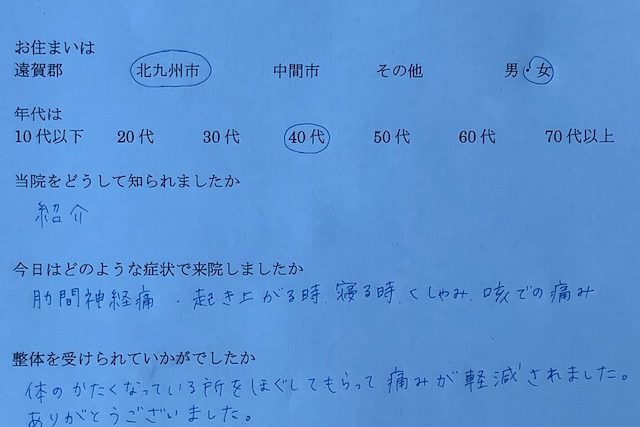 お住まいは
遠賀郡 北九州市 中間市 その他 男・女
年代は
10代以下 20代 30代 40代 50代 60代 70代以上
当院をどうして知られましたか
紹介
今日はどのような症状で来院しましたか
肋間神経痛・起き上がる時、寝る時、くしゃみ、咳での痛み
整体を受けられていかがでしたか
体のかたくなっている所をほぐしてもらって痛みが軽減されました。
ありがとうございました。